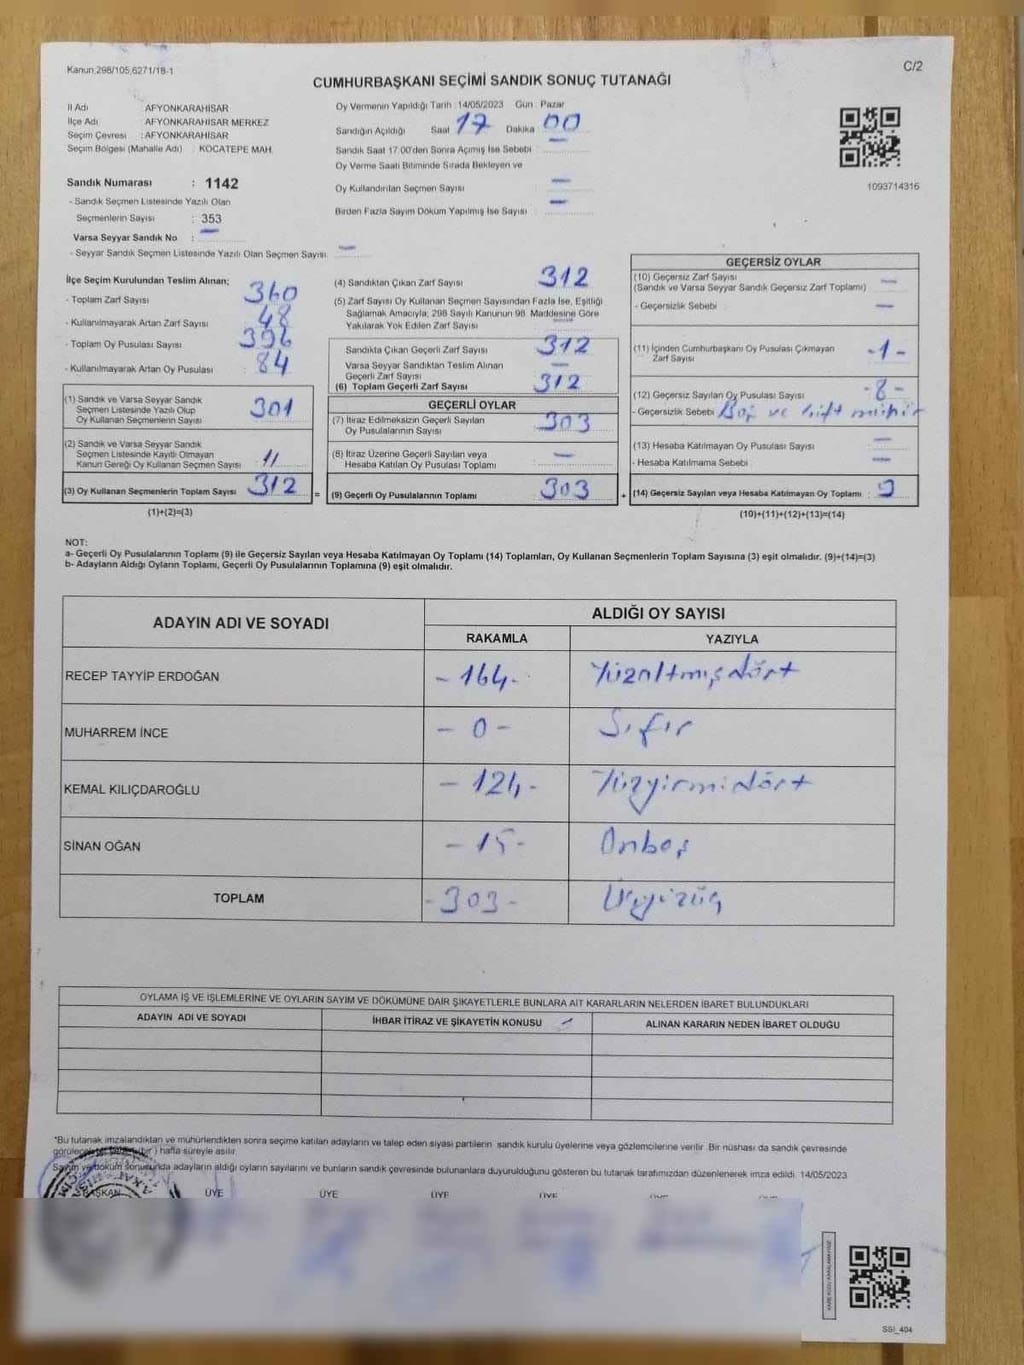 Kanun 298/105,6271/18-1
C/2
CUMHURBAŞKANI SEÇİMİ SANDIK SONUÇ TUTANAĞI
İl Adı AFYONKARAHİSAR
İlçe Adı AFYONKARAHİSAR MERKEZ
Seçim Çevresi : AFYONKARAHİSAR
Seçim Bölgesi (Mahalle Adı) : KOCATEPE MAH.
Sandık Numarası : 1142
- Sandık Seçmen Listesinde Yazılı Olan
Seçmenlerin Sayısı : 353
Varsa Seyyar Sandık No : —
- Seyyar Sandık Seçmen Listesinde Yazılı Olan Seçmen Sayısı —
Oy Vermenin Yapıldığı Tarih :14/05/2023 Gün : Pazar
Sandığın Açıldığı Saat 17 Dakika 00
Sandık Saat 17.00'den Sonra Açılmış İse Sebebi —
Oy Verme Saati Bitiminde Sırada Bekleyen ve
Oy Kullandırılan Seçmen Sayısı —
Birden Fazla Sayım Döküm Yapılmış İse Sayısı —
1093714316
İlçe Seçim Kurulundan Teslim Alınan;
- Toplam Zarf Sayısı 360
- Kullanılmayarak Artan Zarf Sayısı 48
- Toplam Oy Pusulası Sayısı 396
- Kullanılmayarak Artan Oy Pusulası 84
(1) Sandık ve Varsa Seyyar Sandık
Seçmen Listesinde Yazılı Olup
Oy Kullanan Seçmenlerin Sayısı 301
(2) Sandık ve Varsa Seyyar Sandık
Seçmen Listesinde Kayıtlı Olmayan
Kanun Gereği Oy Kullanan Seçmen Sayısı 11
(3) Oy Kullanan Seçmenlerin Toplam Sayısı 312 =
(1)+(2)=(3)
(4) Sandıktan Çıkan Zarf Sayısı 312
(5) Zarf Sayısı Oy Kullanan Seçmen Sayısından Fazla İse, Eşitliği
Sağlamak Amacıyla, 298 Sayılı Kanunun 98. Maddesine Göre
Yakılarak Yok Edilen Zarf Sayısı
Sandıkta Çıkan Geçerli Zarf Sayısı 312
Varsa Seyyar Sandıktan Teslim Alınan
Geçerli Zarf Sayısı —
(6) Toplam Geçerli Zarf Sayısı 312
GEÇERLİ OYLAR
(7) İtiraz Edilmeksizin Geçerli Sayılan
Oy Pusulalarının Sayısı 303
(8) İtiraz Üzerine Geçerli Sayılan veya
Hesaba Katılan Oy Pusulası Toplamı —
(9) Geçerli Oy Pusulalarının Toplamı 303 +
GEÇERSİZ OYLAR
(10) Geçersiz Zarf Sayısı
(Sandık ve Varsa Seyyar Sandık Geçersiz Zarf Toplamı) —
- Geçersizlik Sebebi —
(11) İçinden Cumhurbaşkanı Oy Pusulası Çıkmayan
Zarf Sayısı -1-
(12) Geçersiz Sayılan Oy Pusulası Sayısı -8-
- Geçersizlik Sebebi Boş ve çift mühür
(13) Hesaba Katılmayan Oy Pusulası Sayısı —
- Hesaba Katılmama Sebebi —
(14) Geçersiz Sayılan veya Hesaba Katılmayan Oy Toplamı : 9
(10)+(11)+(12)+(13)=(14)
NOT:
a- Geçerli Oy Pusulalarının Toplamı (9) ile Geçersiz Sayılan veya Hesaba Katılmayan Oy Toplamı (14) Toplamları, Oy Kullanan Seçmenlerin Toplam Sayısına (3) eşit olmalıdır. (9)+(14)=(3)
b- Adayların Aldığı Oyların Toplamı, Geçerli Oy Pusulalarının Toplamına (9) eşit olmalıdır.
ADAYIN ADI VE SOYADI
ALDIĞI OY SAYISI
RAKAMLA YAZIYLA
RECEP TAYYİP ERDOĞAN -164- Yüzaltmışdört
MUHARREM İNCE -0- Sıfır
KEMAL KILIÇDAROĞLU -124- Yüzyirmidört
SİNAN OĞAN -15- Onbeş
TOPLAM -303- Üçyüzüç
OYLAMA İŞ VE İŞLEMLERİNE VE OYLARIN SAYIM VE DÖKÜMÜNE DAİR ŞİKAYETLERLE BUNLARA AİT KARARLARIN NELERDEN İBARET BULUNDUKLARI
ADAYIN ADI VE SOYADI İHBAR İTİRAZ VE ŞİKAYETİN KONUSU ALINAN KARARIN NEDEN İBARET OLDUĞU
*Bu tutanak imzalandıktan ve mühürlendikten sonra seçime katılan adayların ve talep eden siyasi partilerin sandık kurulu üyelerine veya gözlemcilerine verilir. Bir nüshası da sandık çevresinde
görülecek bir yere (bir) hafta süreyle asılır.
Sayım ve döküm sonucunda adayların aldığı oyların sayılarını ve bunların sandık çevresinde bulunanlara duyurulduğunu gösteren bu tutanak tarafımızdan düzenlenerek imza edildi. 14/05/2023
BAŞKAN ÜYE ÜYE ÜYE ÜYE
SSI_404